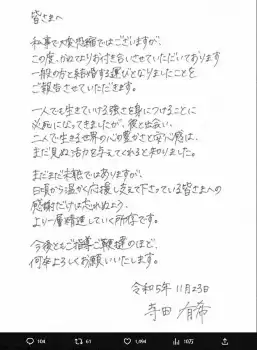 皆さまへ
私事で大変恐縮ではございますが、
この度、かねてよりお付き合いさせていただいております
一般の方と結婚する運びとなりましたことを
ご報告させていただきます。
一人でも生きていける強さを身につけることに
必死になってきましたが、彼と出会い、
二人で生きる世界の心の豊かさと安心感は、
まだ見ぬ活力を与えてくれると知りました。
まだまだ未熟ではありますが、
日頃から温かく応援し支えて下さっている皆さまへの
感謝だけは忘れぬよう、
より一層精進していく所存です。
今後ともご指導ご鞭撻のほど、
何卒よろしくお願いいたします。
令和5年 11月23日
寺田 有希
104
61
1,994
10万